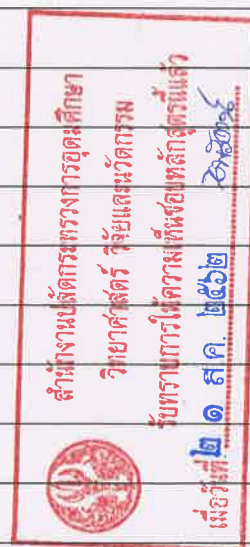 สำนักงานปลัดกระทรวงการอุดมศึกษา
วิทยาศาสตร์ วิจัยและนวัตกรรม
รับทราบการให้ความเห็นชอบหลักสูตรนี้แล้ว
เมื่อวันที่ ๒๑ ส.ค. ๒๕๖๒